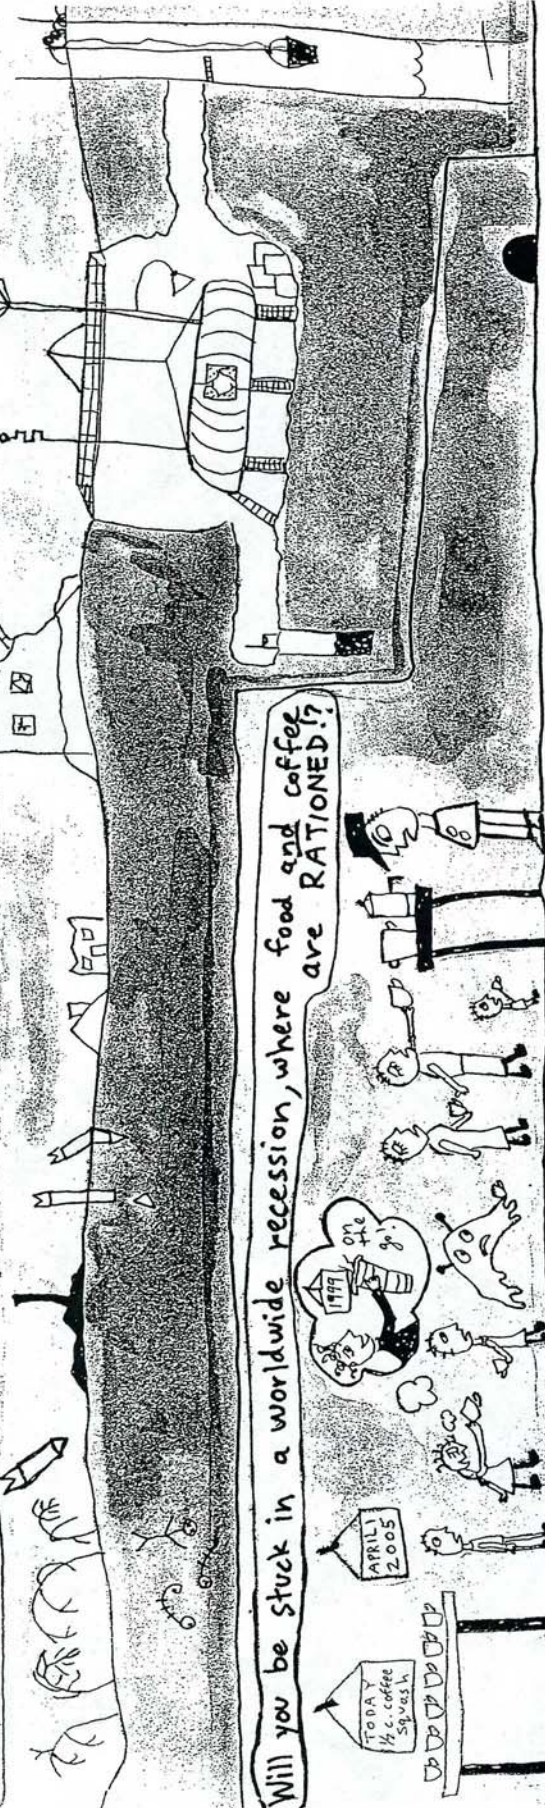 Will you be stuck in a worldwide recession, where food and coffee
are RATIONED!?
on
the
go!
1999
APRIL 1
2005
TODAY
½ c. coffee
squash